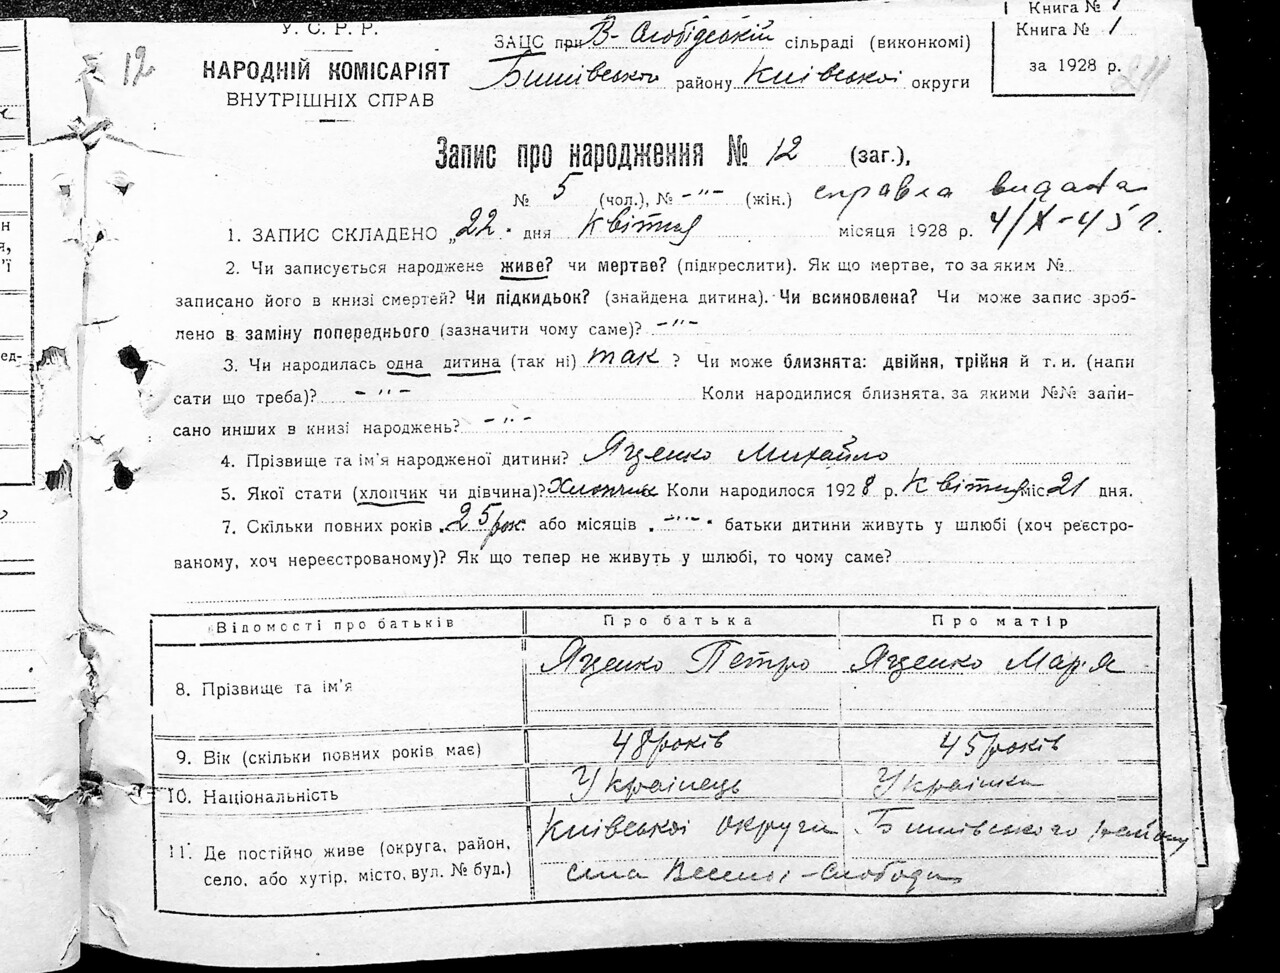 Книга № 1
У. С. Р. Р.
ЗАЦС при В-Слобідській сільраді (виконкомі)
Книга № 1
12
НАРОДНІЙ КОМІСАРІЯТ
Бишівського району Київської округи
за 1928 р.
ВНУТРІШНІХ СПРАВ
Запис про народження № 12 (заг.),
№ 5 (чол.), № -"- (жін.) справка видана
1. ЗАПИС СКЛАДЕНО „22" дня Квітня місяця 1928 р. 4/X-45 г.
2. Чи записується народжене живе? чи мертве? (підкреслити). Як що мертве, то за яким №
записано його в книзі смертей? Чи підкидьок? (знайдена дитина). Чи всиновлена? Чи може запис зроб-
лено в заміну попереднього (зазначити чому саме)? -"-
3. Чи народилась одна дитина (так ні) так ? Чи може близнята: двійня, трійня й т. и. (напи
сати що треба)? -"- Коли народилися близнята, за якими №№ запи-
сано инших в книзі народжень? -"-
4. Прізвище та ім'я народженої дитини? Яценко Михайло
5. Якої стати (хлопчик чи дівчина)? Хлопчик Коли народилося 1928 р. Квітня міс 21 дня.
7. Скільки повних років 25 рок. або місяців -"- батьки дитини живуть у шлюбі (хоч реєстро-
ваному, хоч нереєстрованому)? Як що тепер не живуть у шлюбі, то чому саме?
Відомості про батьків Про батька Про матір
8. Прізвище та ім'я Яценко Петро Яценко Мар'я
9. Вік (скільки повних років має) 48 років 45 років
10. Національність Українець Українка
11. Де постійно живе (округа, район, Київської округи Бишівського району
село, або хутір, місто, вул. № буд.) села Веселої-Слободи